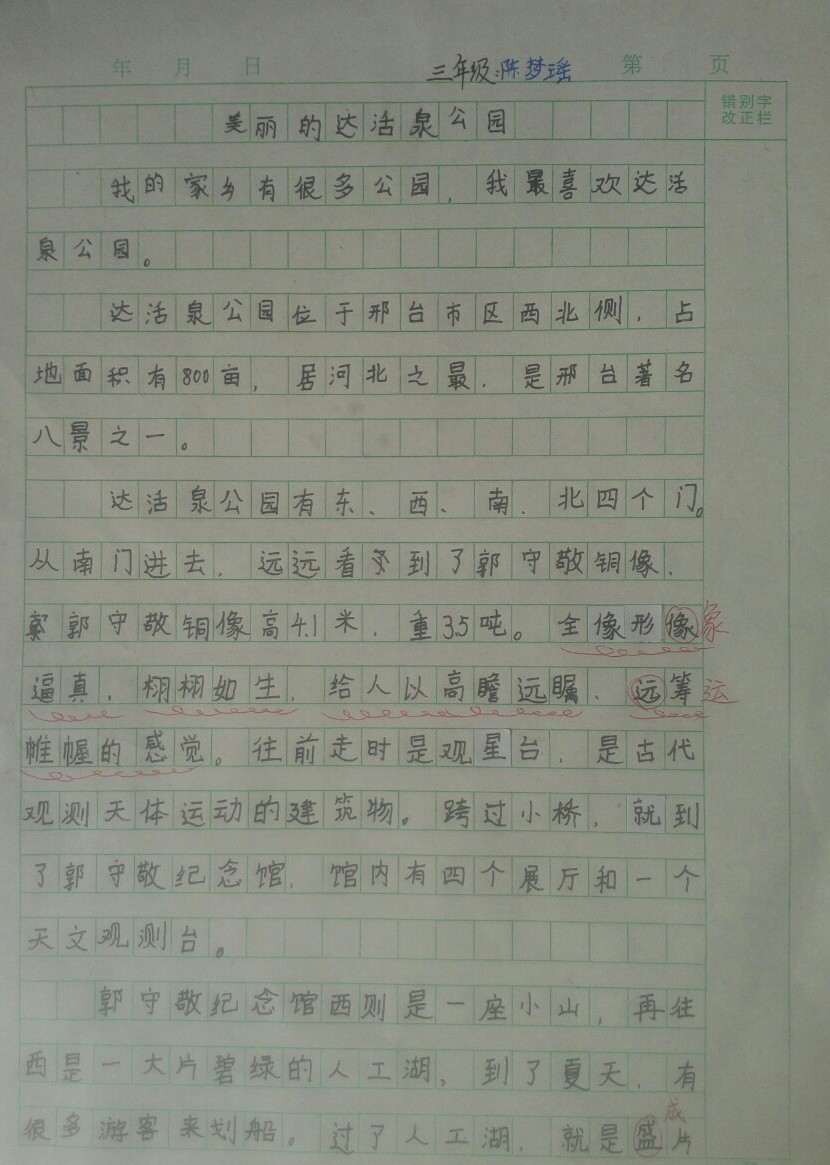 年 月 日 三年级:陈梦瑶 第 页
错别字
改正栏
美丽的达活泉公园
我的家乡有很多公园，我最喜欢达活
泉公园。
达活泉公园位于邢台市区西北侧，占
地面积有800亩，居河北之最，是邢台著名
八景之一。
达活泉公园有东、西、南、北四个门。
从南门进去，远远看到了郭守敬铜像，
郭守敬铜像高4.1米，重3.5吨。全像形像 象
逼真，栩栩如生，给人以高瞻远瞩、远筹 运
帷幄的感觉。往前走时是观星台，是古代
观测天体运动的建筑物。跨过小桥，就到
了郭守敬纪念馆，馆内有四个展厅和一个
天文观测台。
郭守敬纪念馆西则是一座小山，再往
西是一大片碧绿的人工湖，到了夏天，有
成
很多游客来划船。过了人工湖，就是盛片